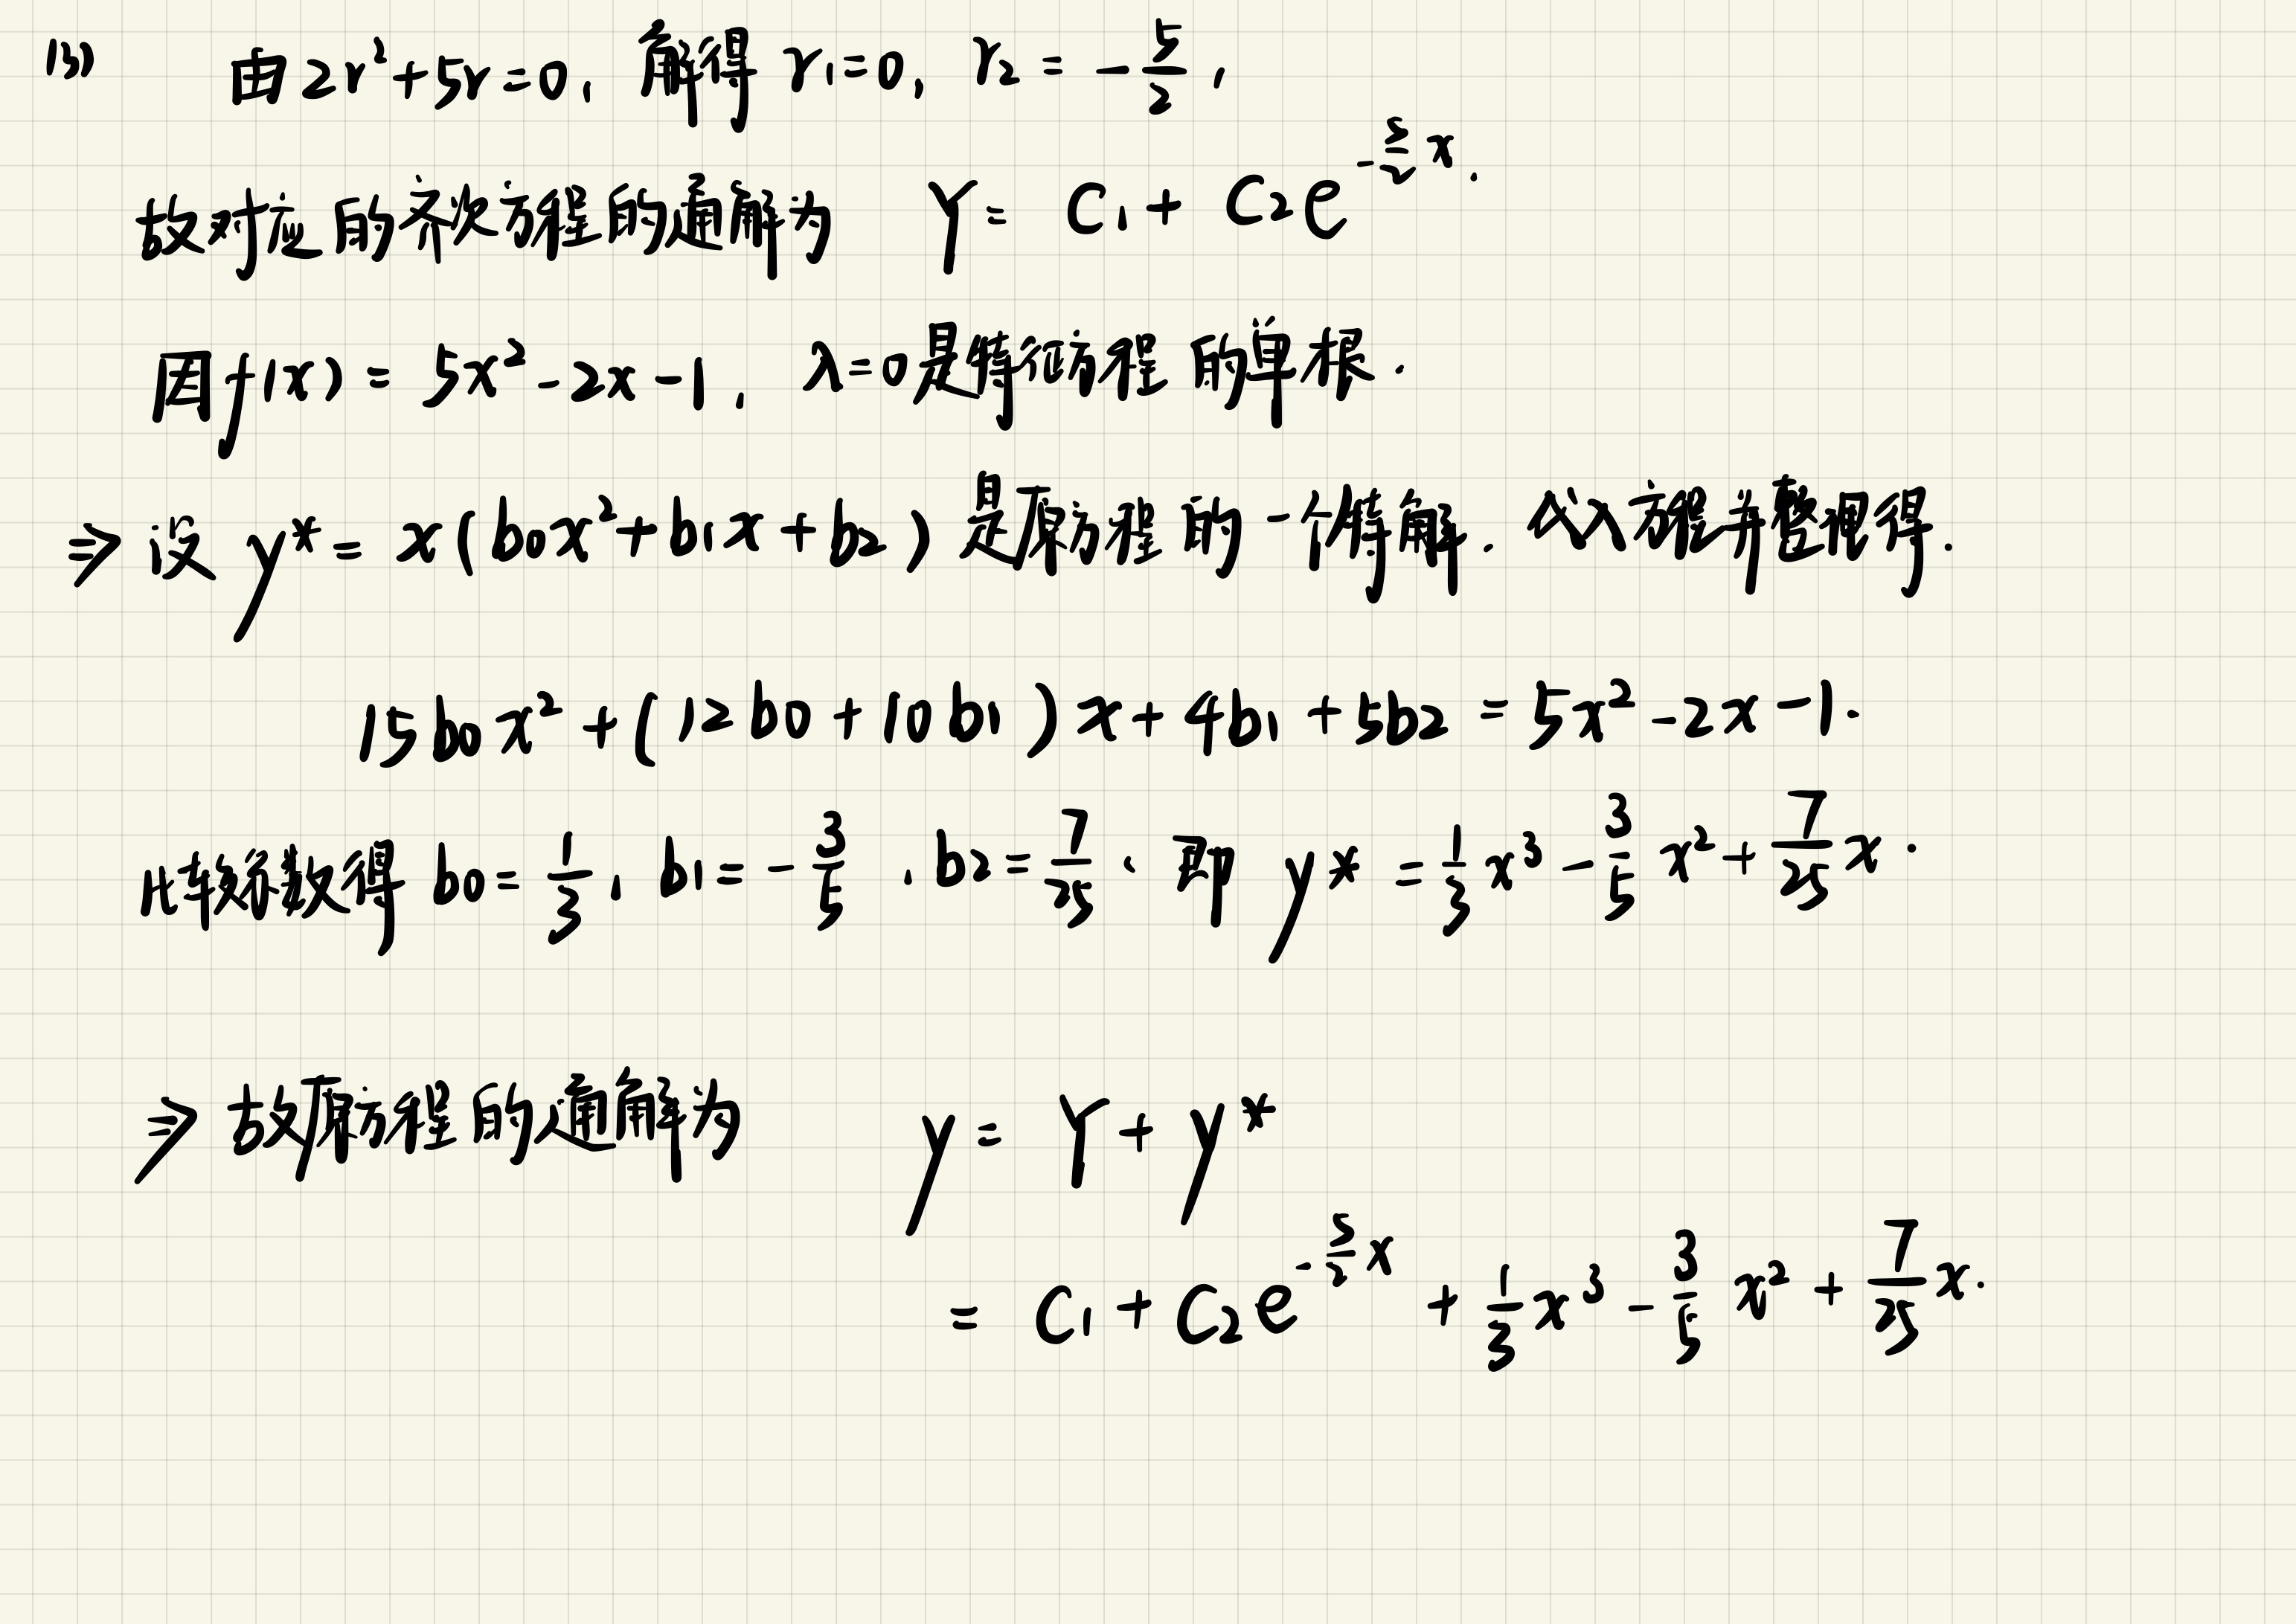 (3) 由2r²+5r=0, 解得 r₁=0, r₂ = -5/2,
故对应的齐次方程的通解为 Y = C₁ + C₂e^{-5/2 x}.
因f(x) = 5x²-2x-1, λ=0是特征方程的单根.
⇒ 设 y* = x(b₀x²+b₁x+b₂) 是原方程的一个特解. 代入方程并整理得.
15b₀x² + (12b₀+10b₁)x + 4b₁+5b₂ = 5x²-2x-1.
比较系数得 b₀=1/3, b₁=-3/5, b₂=7/25, 即 y* = 1/3 x³ - 3/5 x² + 7/25 x.
⇒ 故原方程的通解为 y = Y + y*
= C₁ + C₂e^{-5/2 x} + 1/3 x³ - 3/5 x² + 7/25 x.